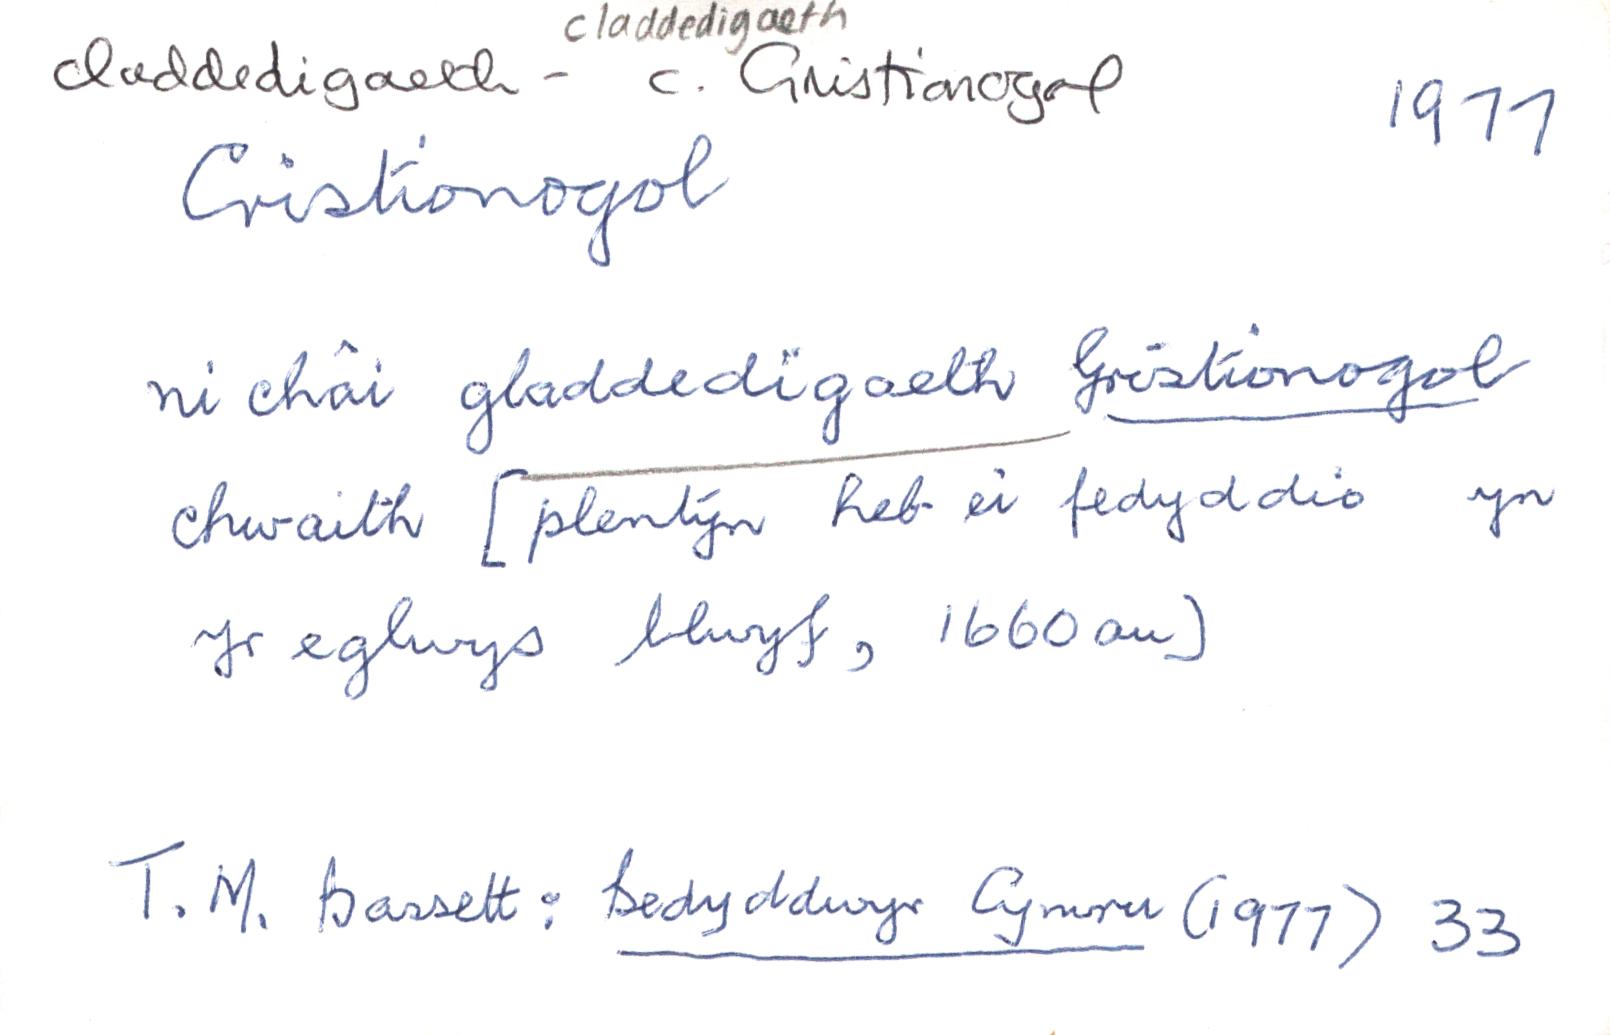 claddedigaeth
claddedigaeth - c. Gristionogol
1977
Cristionogol
ni châi gladdedigaeth Gristionogol
chwaith [plentyn heb ei fedyddio yn
yr eglwys blwyf, 1660au]
T. M. Bassett: Bedyddwyr Cymru (1977) 33